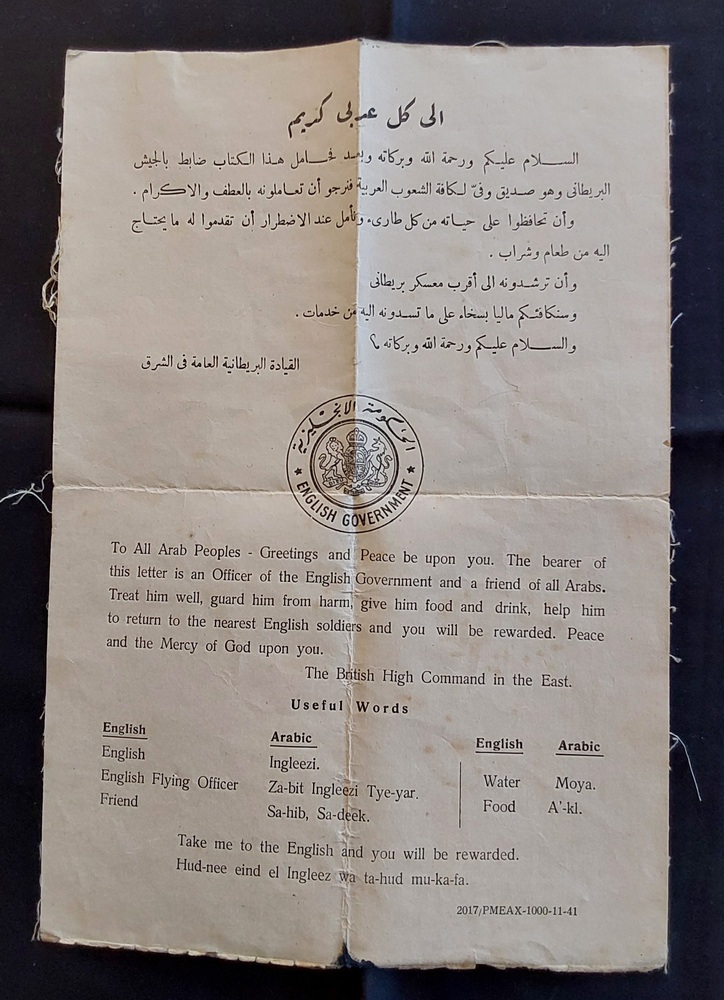 الى كل عربى كريم
الســلام عليكم ورحمة الله وبركاته وبعد فحــامل هــذا الكتاب ضابط بالجيش
البريطانى وهو صـديق وفىّ لـكافة الشعوب العربية فنرجو أن تعـاملونه بالعطف والاكـرام .
وأن تحافظوا على حيـاته من كل طارىء ونأمل عند الاضطرار أن تقدموا له ما يحتـاج
اليه من طعام وشراب .
وأن ترشـدونه الى أقرب معسكر بريطانى
وسنكافئـكم ماليا بسخاء على ما تسـدونه اليه من خدمات .
والســـلام عليـكم ورحمة الله وبركاته
القيادة البريطانية العامة فى الشرق
الحكومة الانجليزية
ENGLISH GOVERNMENT
To All Arab Peoples - Greetings and Peace be upon you. The bearer of
this letter is an Officer of the English Government and a friend of all Arabs.
Treat him well, guard him from harm, give him food and drink, help him
to return to the nearest English soldiers and you will be rewarded. Peace
and the Mercy of God upon you.
The British High Command in the East.
Useful Words
English Arabic English Arabic
English Ingleezi. Water Moya.
English Flying Officer Za-bit Ingleezi Tye-yar. Food A'-kl.
Friend Sa-hib, Sa-deek.
Take me to the English and you will be rewarded.
Hud-nee eind el Ingleez wa ta-hud mu-ka-fa.
2017/PMEAX-1000-11-41